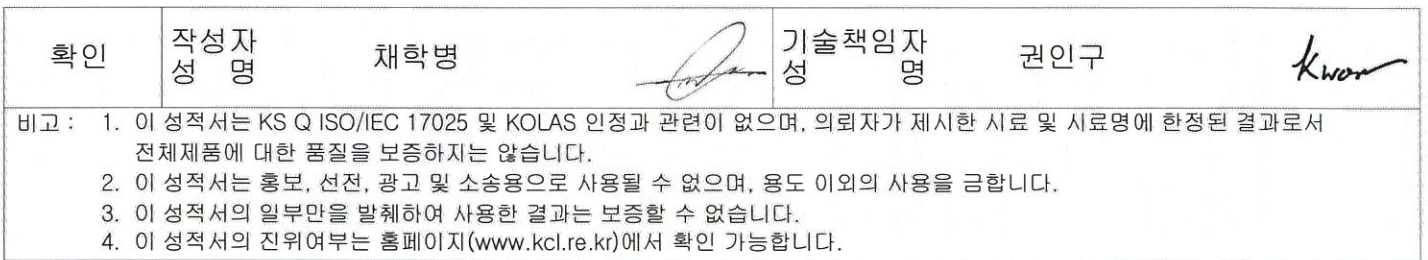 확인 작성자 성 명 채학병 기술책임자 성 명 권인구 Kwon
비고 : 1. 이 성적서는 KS Q ISO/IEC 17025 및 KOLAS 인정과 관련이 없으며, 의뢰자가 제시한 시료 및 시료명에 한정된 결과로서
전체제품에 대한 품질을 보증하지는 않습니다.
2. 이 성적서는 홍보, 선전, 광고 및 소송용으로 사용될 수 없으며, 용도 이외의 사용을 금합니다.
3. 이 성적서의 일부만을 발췌하여 사용한 결과는 보증할 수 없습니다.
4. 이 성적서의 진위여부는 홈페이지(www.kcl.re.kr)에서 확인 가능합니다.